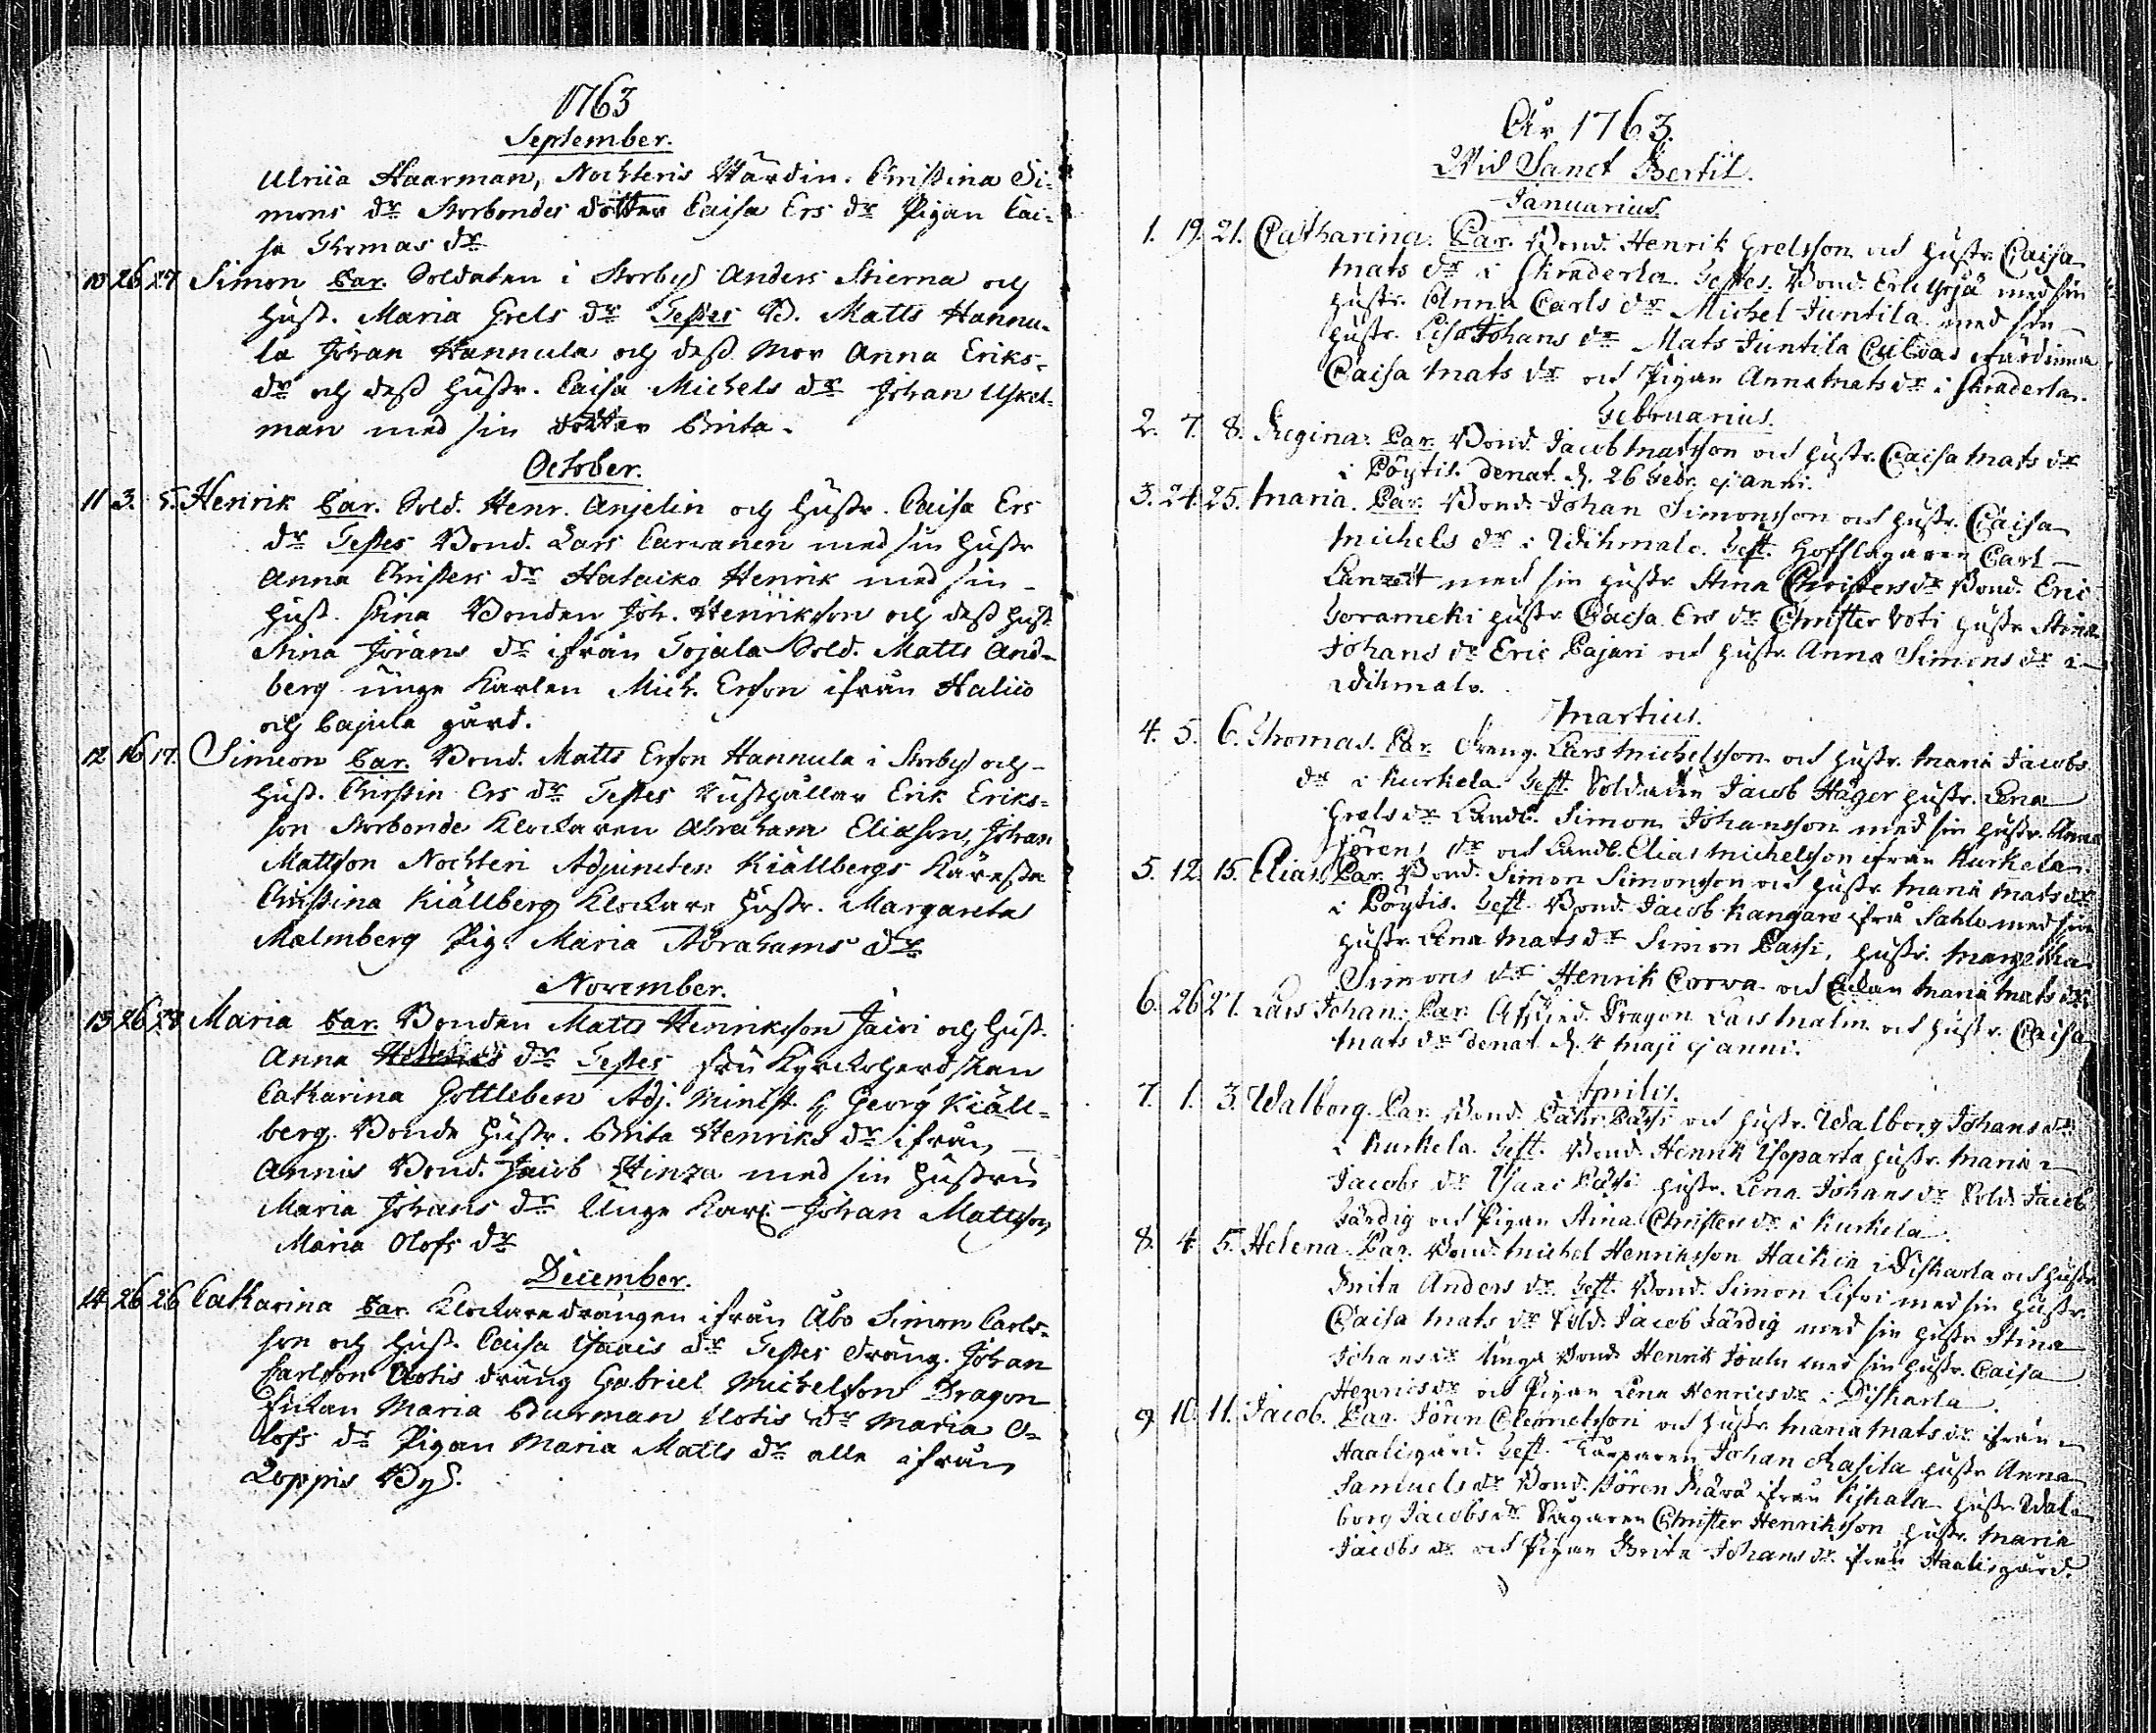 1763
September.
Ulrica Haarman, Nochteris Wärdin. Christina Si-
mons dr Storbondes dotter Caisa Ers dr Pigan Cai-
sa Thomas dr
10 26 27 Simon Par. Soldaten i Storby Anders Stierna och
hust. Maria Grels dr Testes B. Matts Hannu-
la Johan Hannula och dess Mor Anna Eriks-
dr och dess hustr. Caisa Michels dr Johan Uskel-
man med sin dotter Brita.
October.
11 3. 5. Henrik Par. Sold. Henr. Anjelin och hustr. Caisa Ers
dr Testes Bond. Lars Carvanen med sin hustr
Anna Christers dr Hataika Henrik med sin
hust. Stina Bonden Joh. Henriksson och dess hust
Stina Jörans dr ifrån Tojala Sold. Matts And-
berg unge Karlen Mich. Ersson ifrån Halico
och Cajula gård.
12 16 17. Simeon Par. Bond. Matts Ersson Hannula i Storby och
hust. Christin Ers dr Testes Rusthållar Erik Eriks-
son Storbonde Klockaren Abraham Eliasson, Johan
Mattsson Nochteri Adjuncten Kiällbergs Käresta
Christina Kiällberg Klockare hustr. Margareta
Malmberg Pig. Maria Abrahams dr
November.
13 26 28 Maria Par. Bonden Matts Henriksson Jairi och hust.
Anna dr Testes fru Kyrckoherdskan
Catharina Gottleben Adj. Minist. H Georg Kiäll-
berg. Bonde hustr. Brita Henriks dr ifrån
Annis Bond. Jacob Hinza med sin hustru
Maria Johans dr Unge Karl Johan Mattsson
Maria Olofs dr
December.
14 26 26 Catharina Par. Klockaredrängen ifrån Åbo Simon Carls-
son och hust. Caisa Isaacs dr Testes dräng. Johan
Carlsson dräng Gabriel Michelsson Dragon
Enkan Maria Burman dr Maria O-
lofs dr Pigan Maria Matts dr alle ifrån
Loppis By.
År 1763.
Wid Sanct Bertil.
Januarius
1. 19. 21. Catharina. Par. Bond. Henrik Grelsson och hustr. Caisa
Mats dr i Skraderla. Testes. Bond. Erk Yrjä med sin
hustr. Anna Carls dr Michel Juntila med sin
hustr. Lisa Johans dr Mats Juntila
Caisa Mats dr och Pigan Anna Mats dr i Skraderla.
Februarius.
2. 7. 8. Regina. Par. Bond. Jacob Matsson och hustr. Caisa Mats dr
i Pöytis. denat. d. 26 Febr. ej. anni.
3. 24. 25. Maria. Par. Bond. Johan Simonsson och hustr. Caisa
Michels dr i Wihmalo. Test. Hofslagaren Carl
Lanzett med sin hustr. Stina Christers dr Bond. Eric
Sorameki hustr. Caisa Ers dr Christer Voti hustr. Stina
Johans dr Eric Pajari och hustr. Anna Simons dr i
Wihmalo.
Martius.
4. 5. 6. Thomas. Par. Dräng. Lars Michelsson och hustr. Maria Jacobs
dr i Kurkela Test. Soldaten Jacob Häger hustr. Lena
Grels dr Landb. Simon Johansson med sin hustr. Anna
Jörens dr och Landb. Elias Michelsson ifrån Kurkela.
5. 12. 15. Elias. Par. Bond. Simon Simonsson och hustr. Maria Mats dr
i Pöytis. Test. Bond. Jacob Kangare ifrå Sahlo med sin
hustr. Lena Mats dr Simon Passi, hustr. Margetha
Simons dr Henrik Corva och Enkan Maria Mats dr
6. 26 27. Lars Johan. Par. Afskied. Dragon Lars Malm och hustr. Caisa
Mats dr denat. d. 4 Maji ej. anni.
Aprilis.
7. 1. 3. Walborg. Par. Bond. och hustr. Walborg Johans dr
i Kurkela. Test. Bond. Henrik Isoparta hustr. Maria
Jacobs dr Isaac hustr. Lena Johans dr Sold. Jacob
Färdig och Pigan Stina Christers dr i Kurkela.
8. 4. 5. Helena. Par. Bond. Michel Henriksson Haikia i Diskarla och hustr.
Brita Anders dr. Test. Bond. Simon Lifvi med sin hustr.
Caisa Mats dr Sold. Jacob Färdig med sin hustr. Stina
Johans dr Unge Bond. Henrik Joulu med sin hustr. Caisa
Henrics dr och Pigan Lena Henrics dr i Diskarla.
9. 10. 11. Jacob. Par. Jöran Clemetsson och hustr. Maria Mats dr ifrån
Haalisgård. Test. Torparen Johan Rasila hustr. Anna
Samuels dr Bond. Jören ifrån Kijkala hustr. Wal-
borg Jacobs dr Sågaren Christer Henriksson hustr. Maria
Jacobs dr och Pigan Brita Johans dr ifrån Haalisgård.